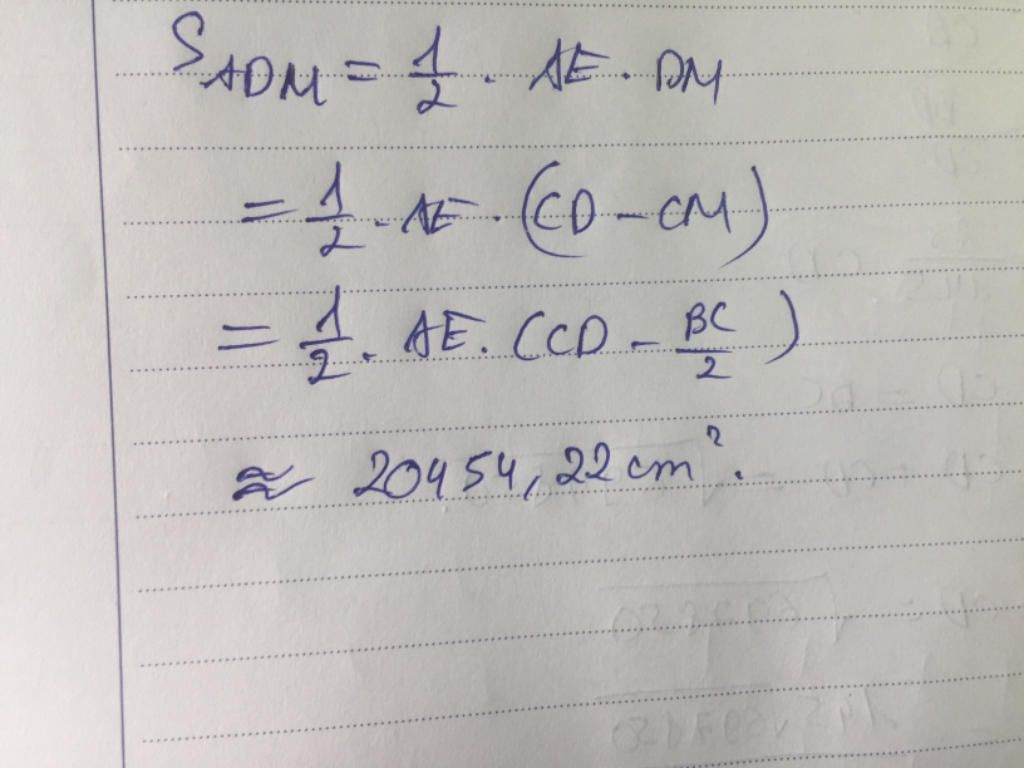 S_ADM = 1/2 . AE . DM
= 1/2 . AE . (CD - CM)
= 1/2 . AE . (CD - BC/2)
≈ 20454,22 cm².